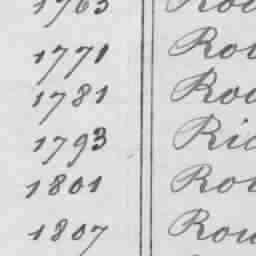 1763
1771 Rou
1781 Roo
1793 Ric
1801 Rou
1807 Rou